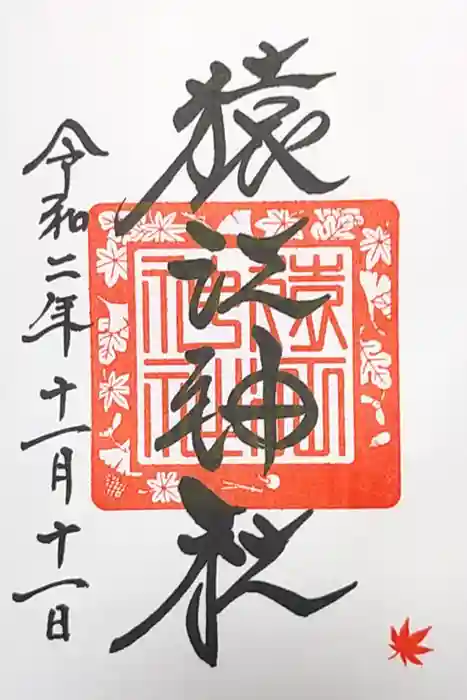 猿江神社
令和二年十一月十一日
猿江
神社